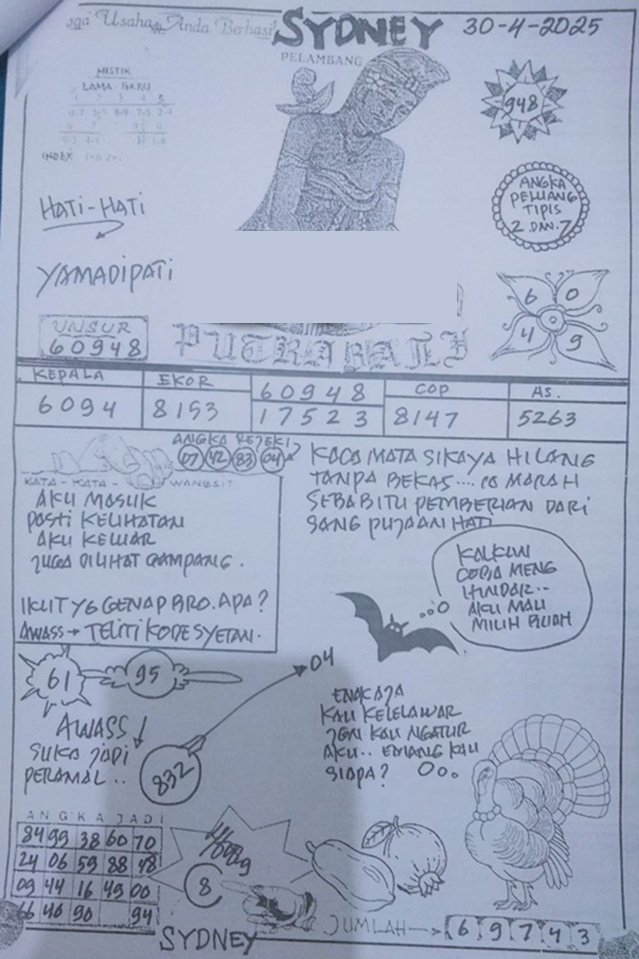 Usaha Anda Berhasil
SYDNEY 30-4-2025
PELAMBANG
MISTIK
LAMA BARU
INDEX
948
HATI-HATI
ANGKA
PELUANG
TIPIS
2 DAN 7
YAMADIPATI
6 0
4 9
UNSUR
60948
PUTRA BALI
KEPALA EKOR 60948 COP AS.
6094 8153 17523 8147 5263
ANGKA REJEKI
07 42 83 04
KATA - KATA - WANGSIT
AKU MASUK
PASTI KELIHATAN
AKU KELUAR
JUGA DILIHAT GAMPANG.
IKUT YG GENAP BRO. APA?
AWASS → TELITI KODE SYETAN.
KACA MATA SIKAYA HILANG
TANPA BEKAS.... CO MARAH
SEBAB ITU PEMBERIAN DARI
SANG PUJAAN HATI
KALKUN
COBA MENG
HINDAR..
AKU MAU
MILIH BUAH
61 95
04
AWASS!
SUKA JADI
PERAMAL..
832
ENAK AJA
KAU KELELAWAR
KAU NGATUR
AKU.. EMANG KAU
SIAPA?
ANGKA JADI
84 99 38 60 70
24 06 59 88 48
09 44 16 49 00
66 46 90 94
8
SYDNEY
JUMLAH → 6 9 7 4 3